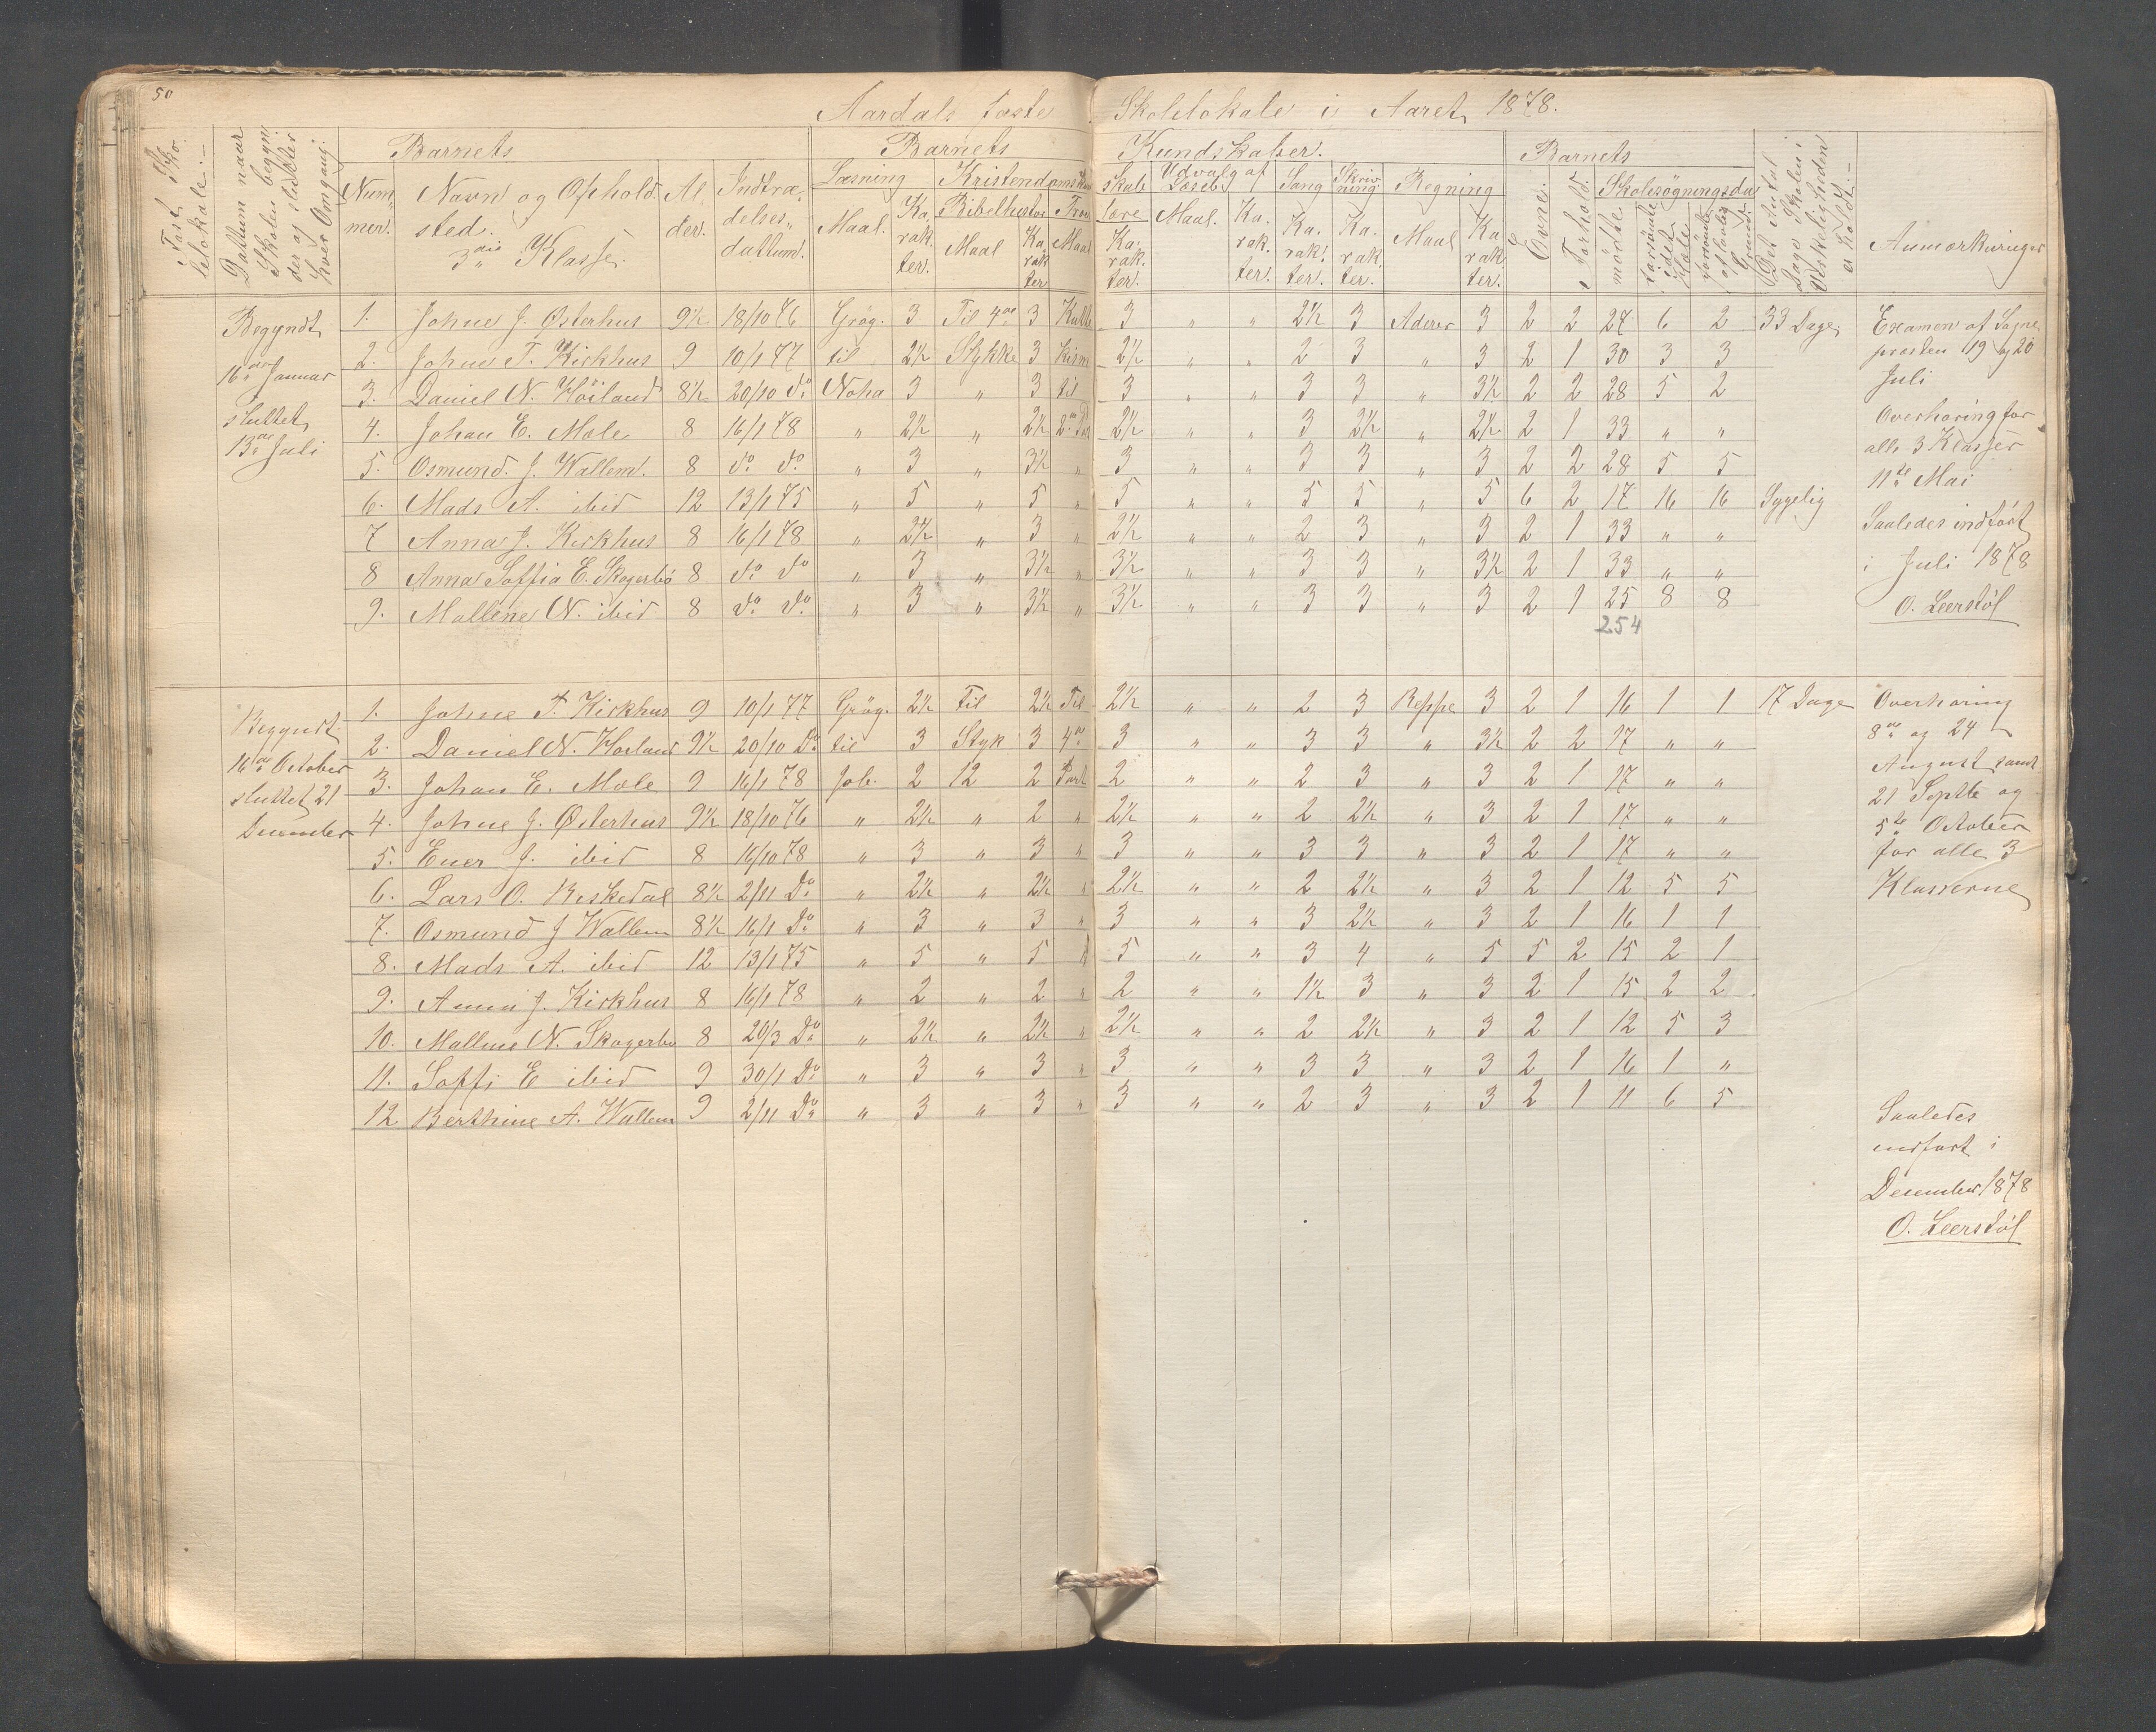 50
Aardals faste Skolelokale i Aaret 1878.
Fast Skolelokale.
Dattum naar Skolen begynder og slutter hver Omgang.
Barnets
Barnets Kundskaber.
Barnets
Nummer.
Navn og Opholdsted.
3die Klasse.
Alder.
Indtrædelsesdattum.
Læsning
Kristendomskundskab
Udvalg af Læseb.
Sang
Skrivning
Regning
Evner.
Forhold.
Skolesøgningsdage
Det Antal Dage Skolen i Virkeligheden er holdt.
Anmærkninger
Maal.
Karakter.
Bibelhistorie
Maal
Karakter
Troeslære
Maal
Karakter.
Maal.
Karakter.
Karakter.
Karakter.
Maal
Karakter.
mödte.
forsömte i det Hele
Begyndt 16de Januar sluttet 13de Juli
1. Johne J. Østerhus 9½ 18/10 76 Grög. 3 Til 4de 3 3 " " 2½ 3 Aderer 3 2 2 27 6 2 33 Dage
2. Johne T. Kirkhus 9 10/1 77 til 2½ Stykke 3 2½ " " 2 3 " 3 2 1 30 3 3
3. Daniel N. Höiland 8½ 20/10 do Noha 3 " 3 til 3 " " 3 3 " 3½ 2 2 28 5 2
4. Johan E. Mæle 8 16/1 78 " 2½ " 2½ 2½ " " 3 2½ " 2½ 2 1 33 " "
5. Osmund. J. Wallem. 8 do do " 3 " 3½ " 3 " " 3 3 " 3 2 2 28 5 5
6. Mads A. ibid 12 13/1 75 " 5 " 5 " 5 " " 5 5 " 5 6 2 17 16 16 Sygelig
7 Anna J. Kirkhus 8 16/1 78 " 2½ " 3 " 2½ " " 2 3 " 3 2 1 33 " "
8 Anna Soffia E. Skogerbö 8 do do " 3 " 3½ " 3½ " " 3 3 " 3½ 2 1 33 " "
9. Mallene N. ibid 8 do do " 3 " 3½ " 3½ " " 3 3 " 3 2 1 25 8 8
254
Examen af Sogne
præsten 19 og 20
Juli
Overhøring for
alle 3 Klasser
11te Mai
Saaledes indfört
i Juli 1878
O. Leerstöl
Begyndt
16de October
sluttet 21
December
1. Johne T. Kirkhus 9 10/1 77 Grög. 2½ Til 2½ Til 2½ " " 2 3 Reppe 3 2 1 16 1 1 17 Dage
2. Daniel N. Høiland 9½ 20/10 do til 3 Styk 3 4de 3 " " 3 3 " 3½ 2 2 17 " "
3. Johan E. Mæle 9 16/1 78 Job. 2 12 2 Part 2 " " 2 3 " 3 2 1 17 " "
4. Johne J. Østerhus 9½ 18/10 76 " 2½ " 2 " 2½ " " 2 2½ " 3 2 1 17 " "
5. Ener J. ibid 8 16/10 78 " 3 " 3 " 3 " " 3 3 " 3 2 1 17 " "
6. Lars O. Riskedal 8½ 2/11 do " 2½ " 2½ " 2½ " " 2 2½ " 3 2 1 12 5 5
7. Osmund J Wallem 8½ 16/1 do " 3 " 3 " 3 " " 3 2½ " 3 2 1 16 1 1
8. Mads A. ibid 12 13/1 75 " 5 " 5 " 5 " " 3 4 " 5 5 2 15 2 1
9. Anna J. Kirkhus 8 16/1 78 " 2 " 2 " 2 " " 1½ 3 " 3 2 1 15 2 2
10. Mallene N. Skogerbø 8 20/3 do " 2½ " 2½ " 2½ " " 2 2½ " 3 2 1 12 5 3
11. Soffi E ibid 9 30/1 do " 3 " 3 " 3 " " 3 3 " 3 2 1 16 1 "
12 Berthine A. Wallem 9 2/11 do " 3 " 3 " 3 " " 2 3 " 3 2 1 11 6 5
Overhøring
8de og 24
August samt
21 Septbr og
5te October
for alle 3
Klasserne
Saaledes
indført i
December 1878
O. Leerstöl